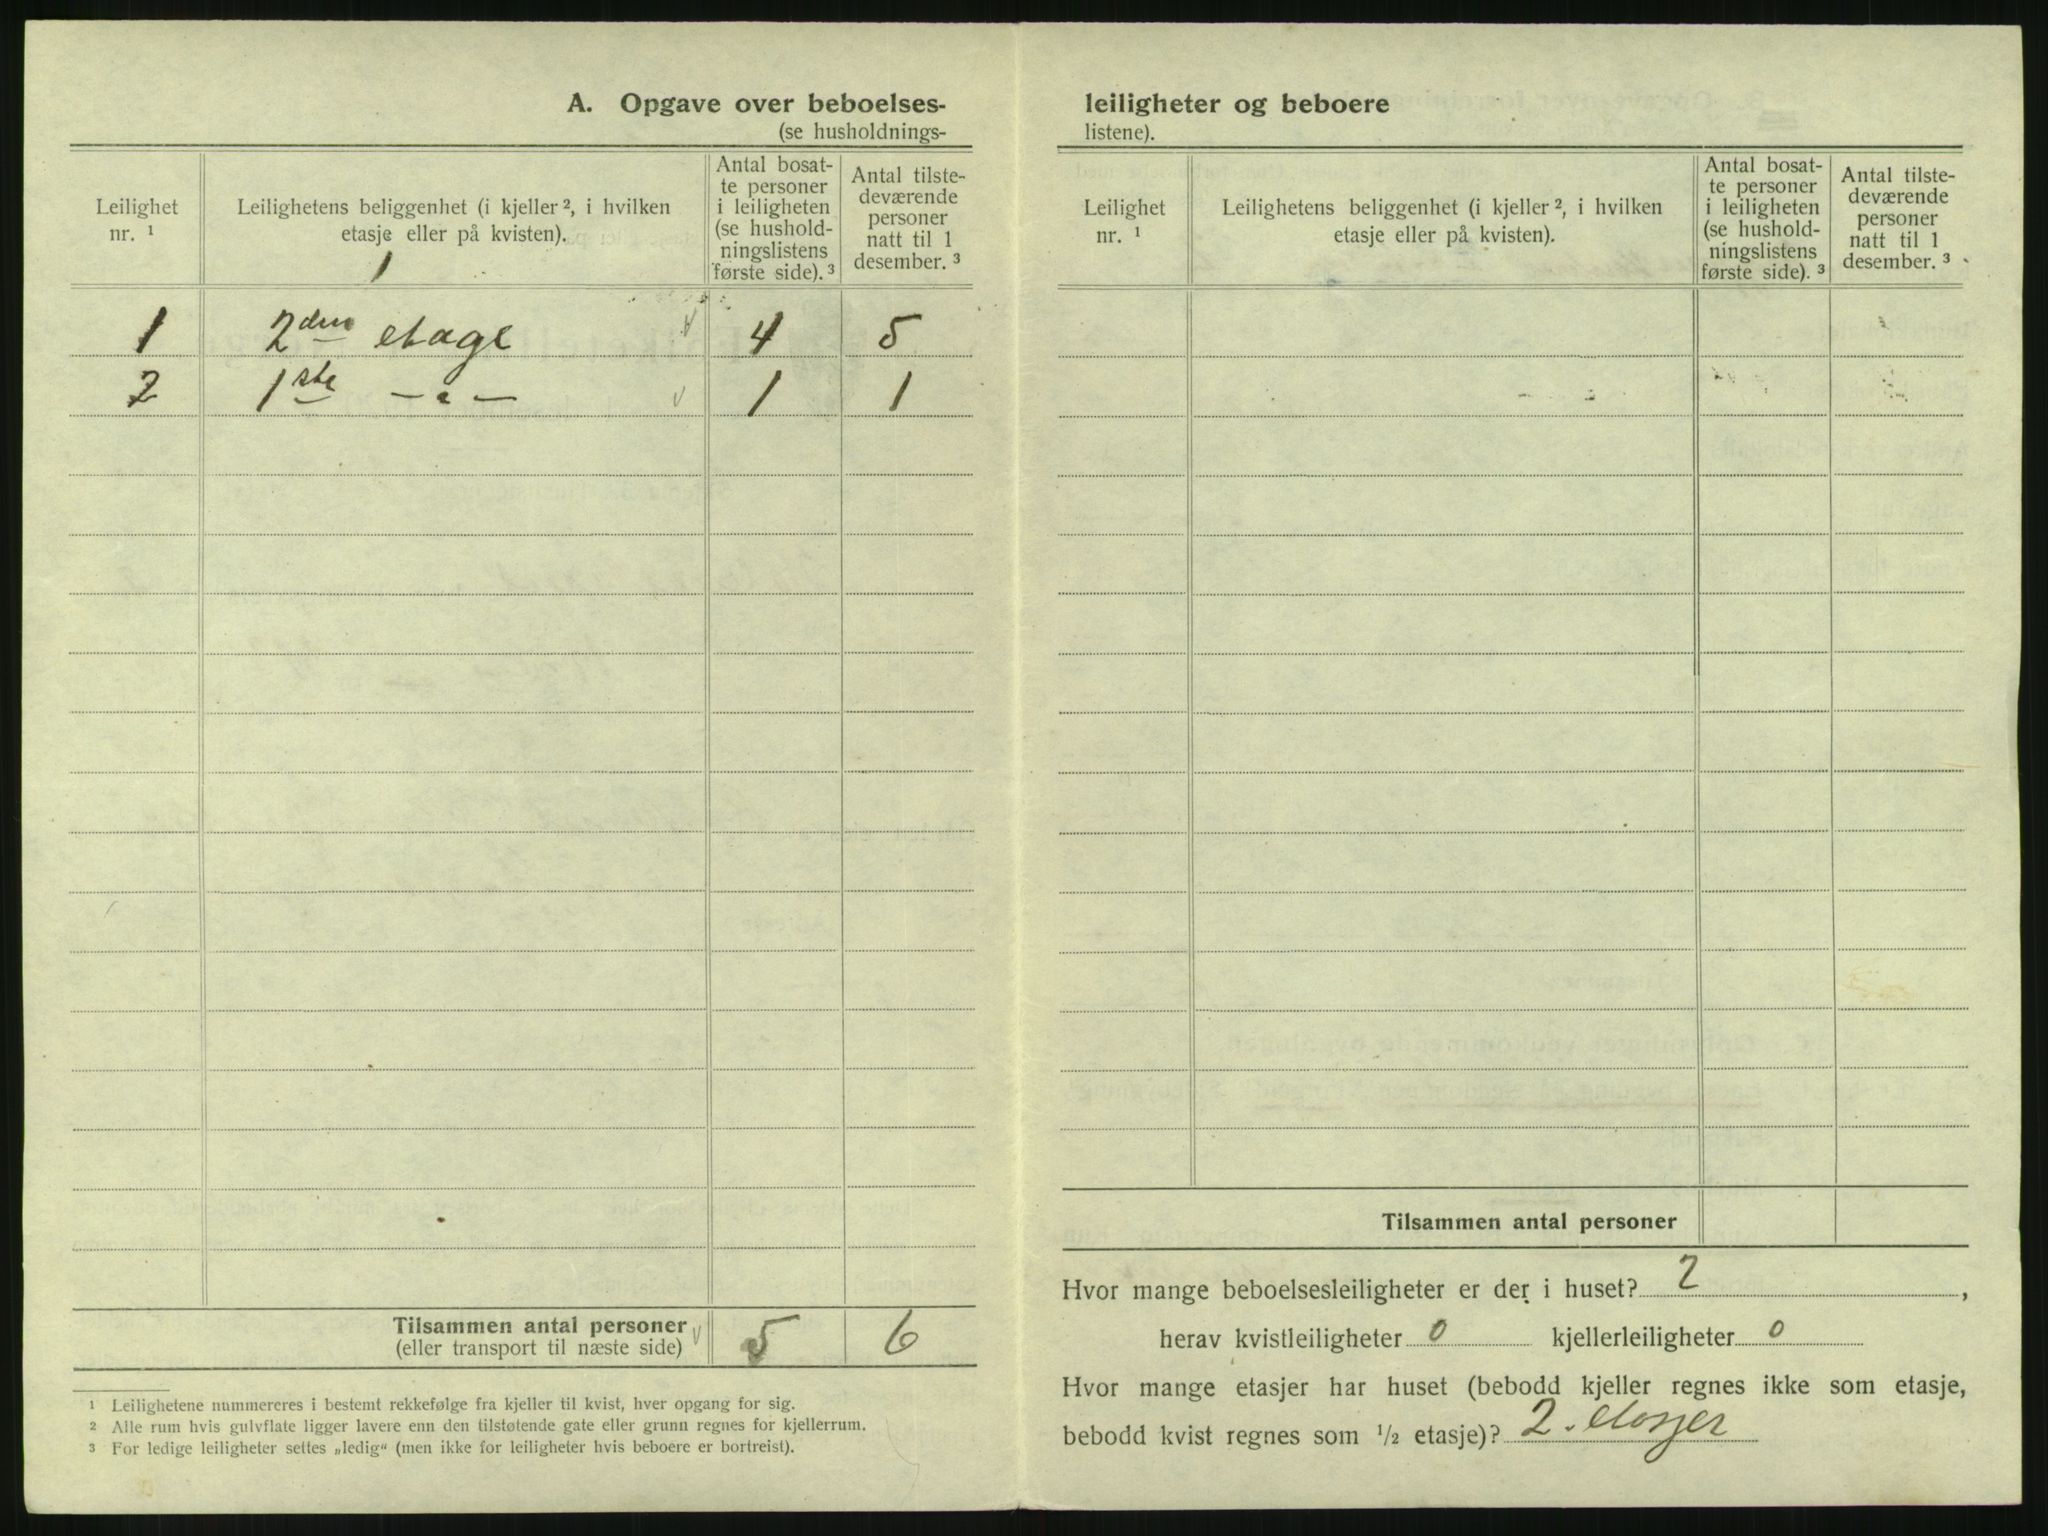 A. Opgave over beboelses-
(se husholdnings-
Leilighet nr. ¹
Leilighetens beliggenhet (i kjeller ², i hvilken
etasje eller på kvisten).
Antal bosat-
te personer
i leiligheten
(se hushold-
ningslistens
første side). ³
Antal tilste-
deværende
personer
natt til 1
desember. ³
1
1 2den etage 4 5
2 1ste — " — 1 1
Tilsammen antal personer 5 6
(eller transport til næste side)
¹ Leilighetene nummereres i bestemt rekkefølge fra kjeller til kvist, hver opgang for sig.
² Alle rum hvis gulvflate ligger lavere enn den tilstøtende gate eller grunn regnes for kjellerrum.
³ For ledige leiligheter settes „ledig“ (men ikke for leiligheter hvis beboere er bortreist).
leiligheter og beboere
listene).
Leilighet nr. ¹
Leilighetens beliggenhet (i kjeller ², i hvilken
etasje eller på kvisten).
Antal bosat-
te personer
i leiligheten
(se hushold-
ningslistens
første side). ³
Antal tilste-
deværende
personer
natt til 1
desember. ³
Tilsammen antal personer
Hvor mange beboelsesleiligheter er der i huset? 2,
herav kvistleiligheter 0 kjellerleiligheter 0
Hvor mange etasjer har huset (bebodd kjeller regnes ikke som etasje,
bebodd kvist regnes som ½ etasje)? 2. etasjer